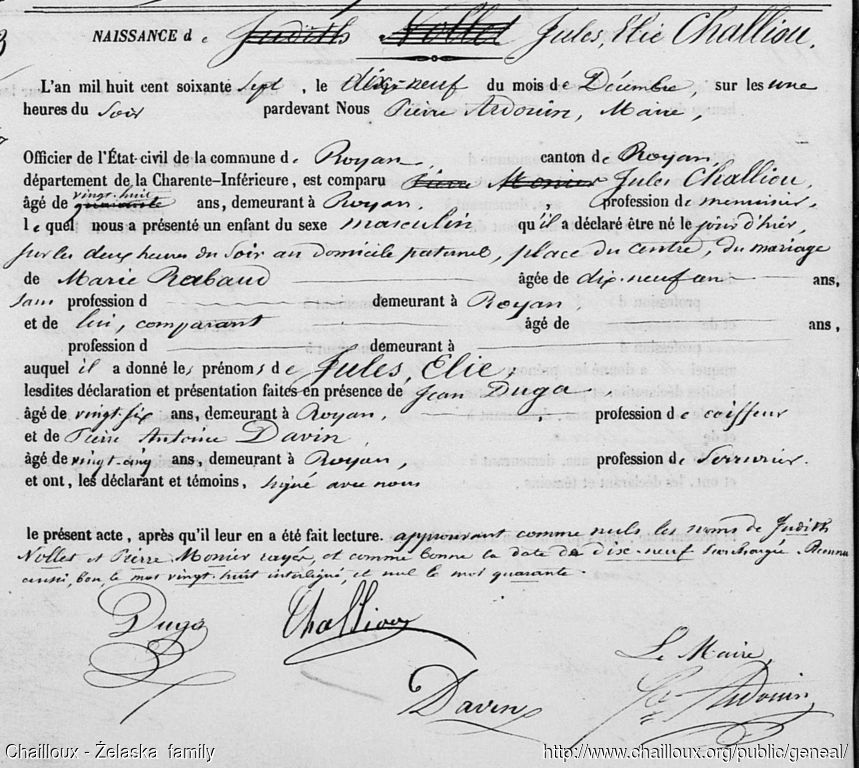 NAISSANCE de Judith Nollet Jules, Elie Challiou.
L'an mil huit cent soixante sept, le dix-neuf du mois de Décembre, sur les une
heures du Soir pardevant Nous Pierre Ardouin, Maire,
Officier de l'État-civil de la commune de Royan, canton de Royan,
département de la Charente-Inférieure, est comparu Pierre Monier Jules Challiou,
vingt-huit
âgé de quarante ans, demeurant à Royan, profession de menuisier,
lequel nous a présenté un enfant du sexe masculin qu'il a déclaré être né le jour d'hier,
sur les deux heures du Soir au domicile paternel, place du centre, du mariage
de Marie Rabaud âgée de dix-neuf an ans,
sans profession d demeurant à Royan,
et de lui, comparant âgé de ans,
profession d demeurant à
auquel il a donné les prénoms de Jules, Elie,
lesdites déclaration et présentation faites en présence de Jean Duga,
âgé de vingt-six ans, demeurant à Royan, profession de coiffeur
et de Pierre Antoine Davin
âgé de vingt-cinq ans, demeurant à Royan, profession de serrurier.
et ont, les déclarant et témoins, signé avec nous
le présent acte, après qu'il leur en a été fait lecture. approuvant comme nuls les noms de Judith
Nollet et Pierre Monier rayés, et comme bonne la date de dix-neuf surchargée. Reconnu
aussi, bon le mot vingt-huit interligné, et nul le mot quarante.
Duga Challiou
Le Maire,
Davin Ardouin
Chailloux - Żelaska family http://www.chailloux.org/public/geneal/